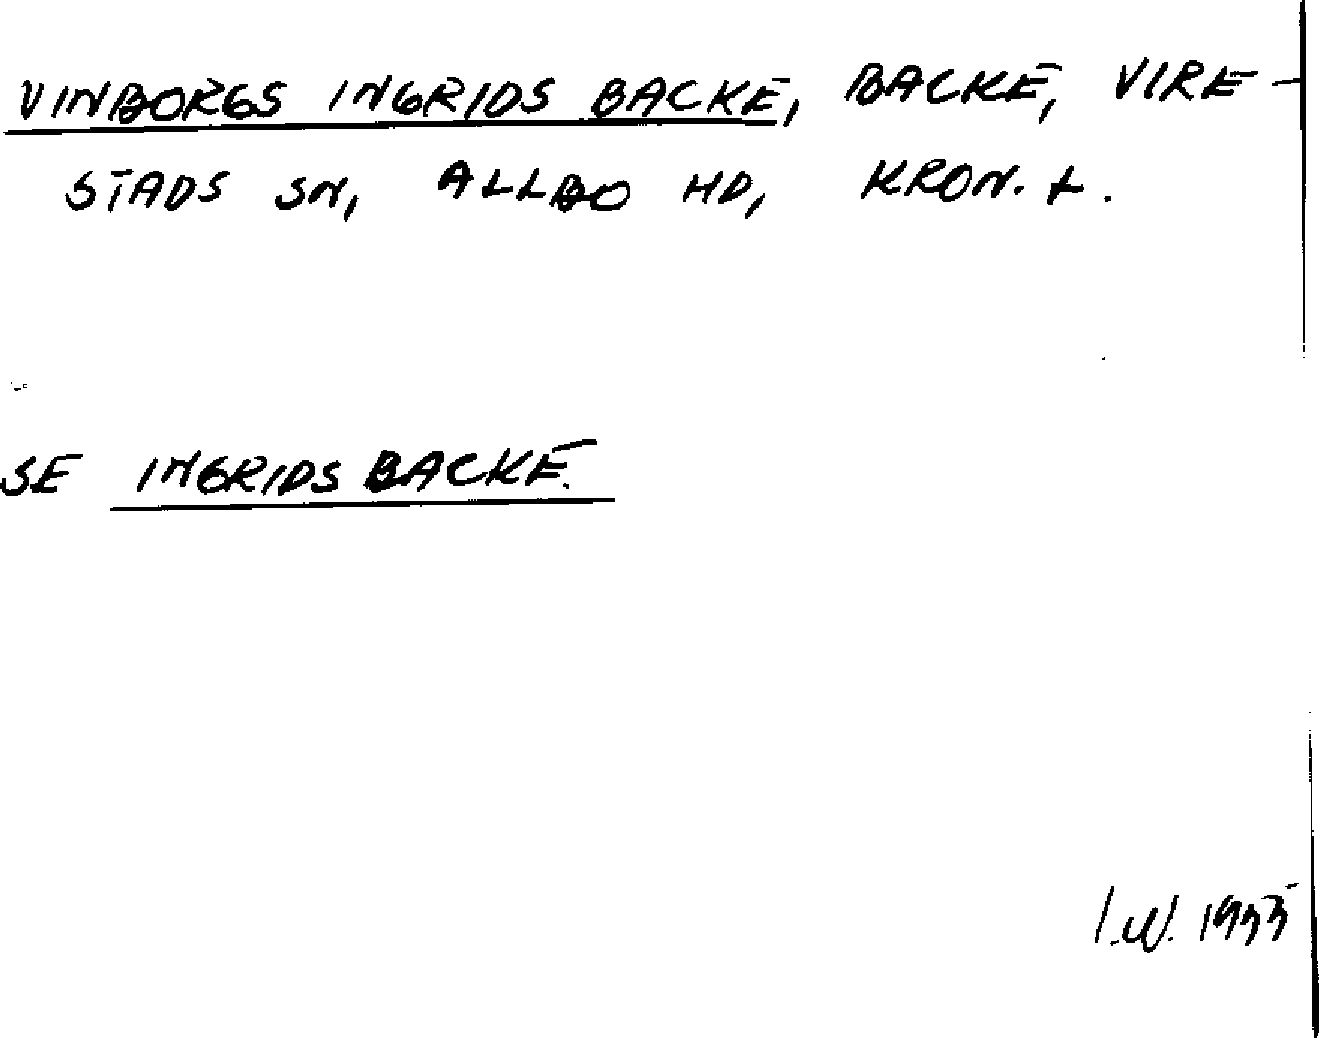 VINBORGS INGRIDS BACKE, BACKE, VIRE-
STADS SN, ALLBO HD, KRON. L.
SE INGRIDS BACKE.
I.W.